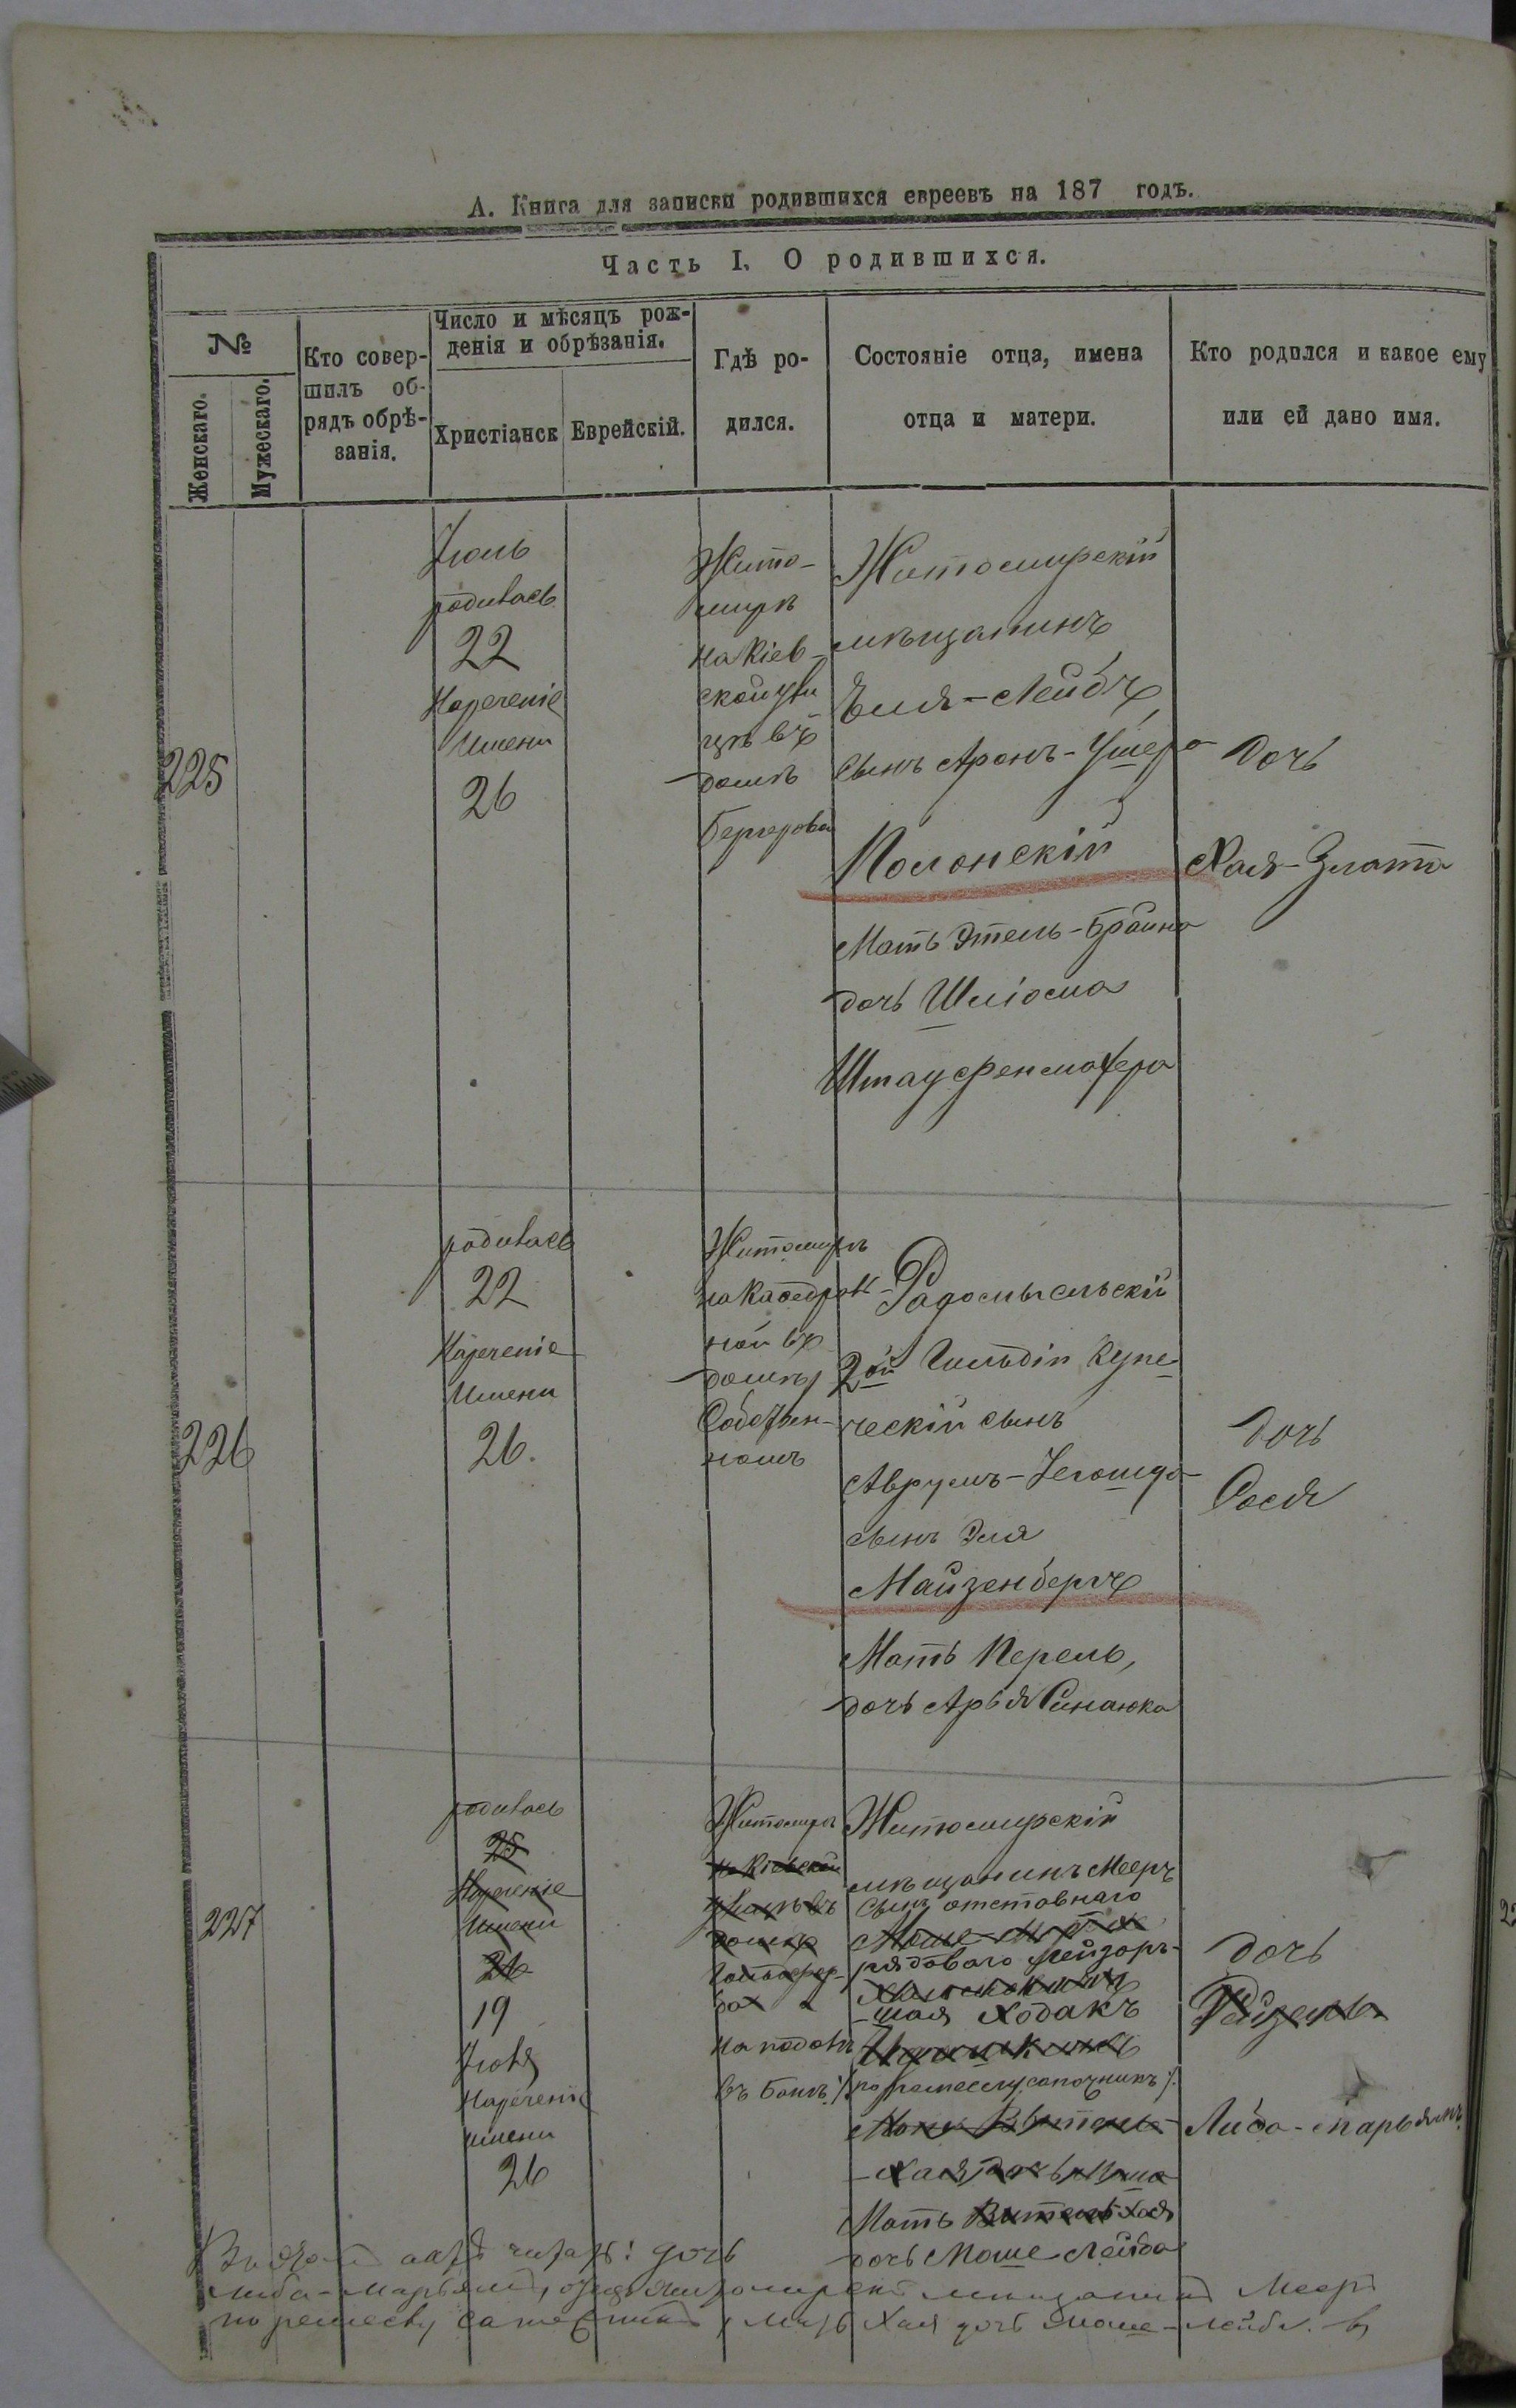 А. Книга для записки родившихся евреевъ на 187 годъ.
Часть I. О родившихся.
№
Женскаго.
Мужескаго.
Кто совер-
шилъ об-
рядъ обрѣ-
занія.
Число и мѣсяцъ рож-
денія и обрѣзанія.
Христіанск
Еврейскій.
Гдѣ ро-
дился.
Состояніе отца, имена
отца и матери.
Кто родился и какое ему
или ей дано имя.
225
Іюль
родилась
22
Нареченіе
Имени
26
Жито-
мирѣ
на Кіев-
ской ули
цѣ въ
домѣ
Бергерова
Житомирскій
мѣщанинъ
Эля-Лейбъ
сынъ Аронъ-Ушера
Полонскій
Мать Этель-Брайна
дочь Шліома
дочь
Хая-Злата
226
родилась
22
Нареченіе
Имени
26.
Житомирѣ
на Каѳедраль
ной въ
домѣ
Собствен-
номъ
Радомысльскій
2ой Гильдіи Купе-
ческій сынъ
Аврумъ-Іегошуа
сынъ Эля
Майзенбергъ
Мать Перель,
дочь Арья Синаюка
дочь
Сося
227
родилась
25
Нареченіе
Имени
26
19
Іюля
Нареченіе
имени
26
Житомирѣ
на Кіевской
улицѣ въ
домѣ
на подолѣ
въ
Житомирскій
мѣщанинъ Мееръ
сынъ отставнаго
рядоваго Лейзоръ-
Ходакъ
по ремеслу сапожникъ
Мать Витель-Хая
дочь Моше-Лейба
дочь
Рейзель
Либа-Марьямъ
читать: дочь
Либа-Марьямъ, отецъ Житомирскій мѣщанинъ Мееръ
по ремеслу сапожникъ, мать Хая дочь Моше-Лейба.